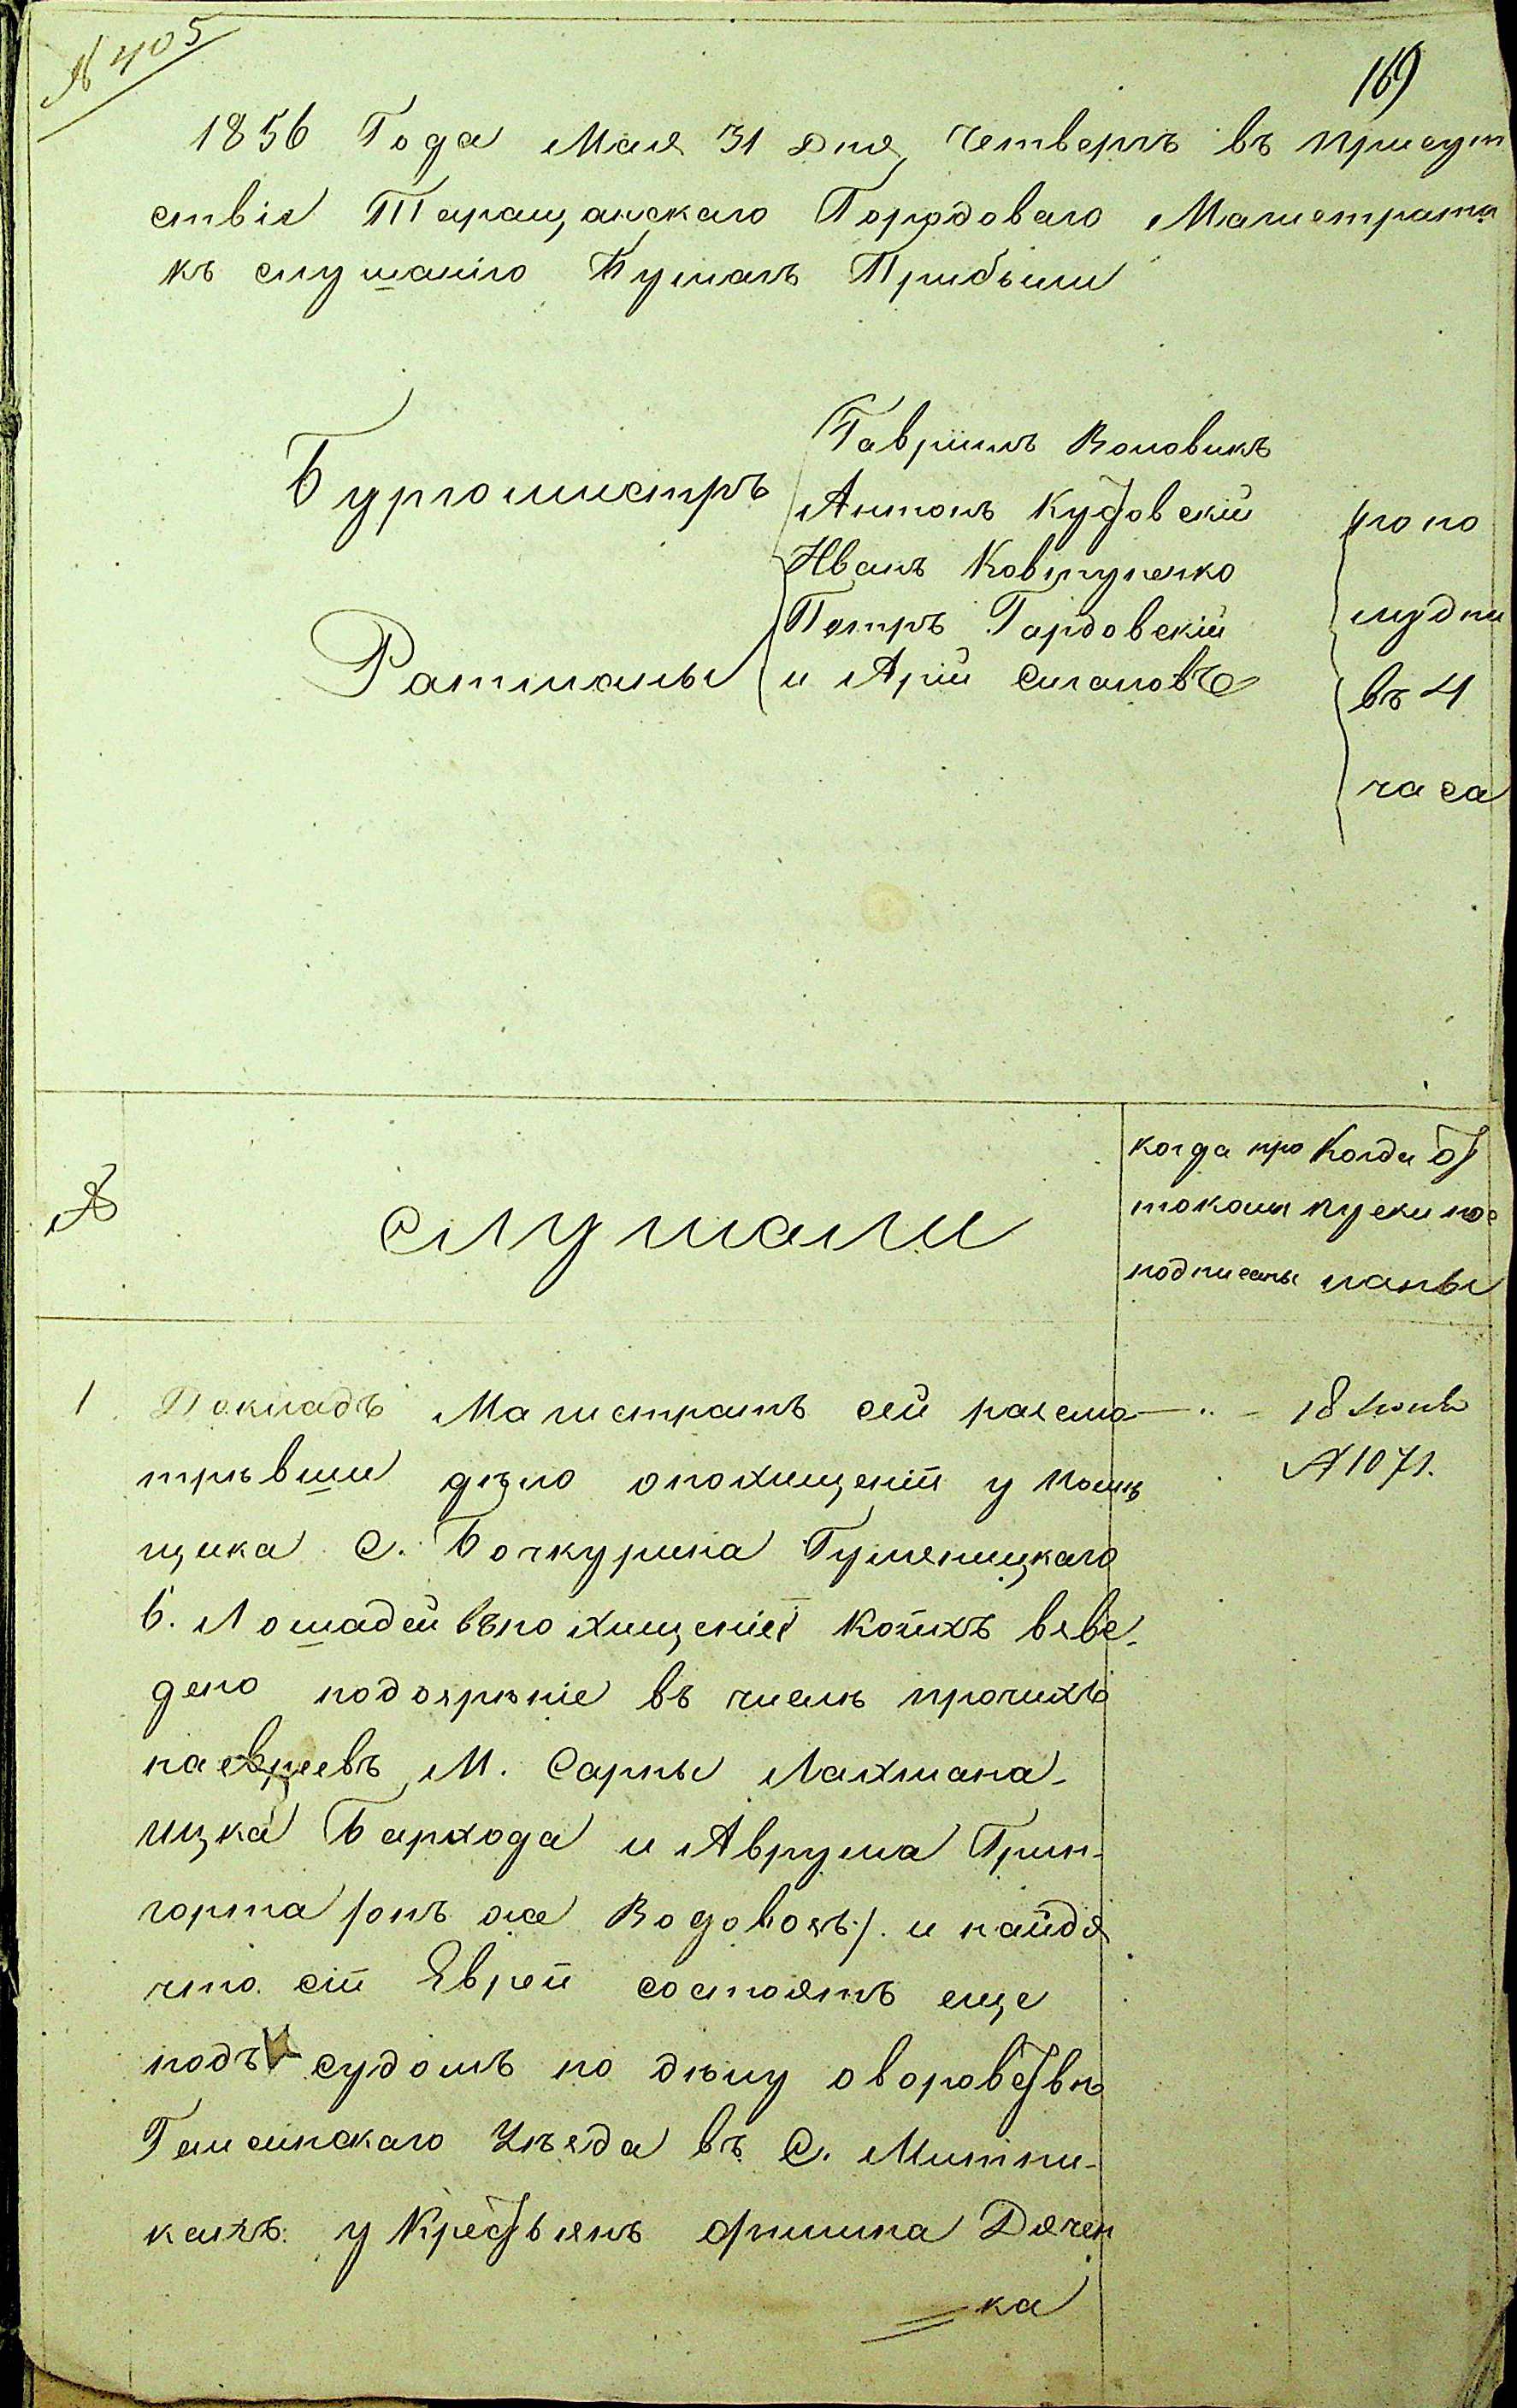 № 405
169
1856 Года Мая 31 Дня, Четвергъ въ присут
ствіе Таращанскаго Городоваго Магистрата
къ слушанію Бумагъ Прибыли
Гавріилъ Воловикъ
Бургомистръ
Антонъ Кутовскій
Иванъ Ковтуненко
Петръ Гардовскій
Ратманы
и Арій Сигаловъ
по по
лудни
въ 4
часа
№
слушали
когда про
токолы
подписаны
Когда от
пуски пос
ланы
1. Докладъ Магистратъ сей разсмо
трѣвши дѣло опохищеніи у помѣ
щика С. Бочкурина Гуменицкаго
6. Лошадей въпохищеніи коихъ взве-
дено подозрѣніе въ числѣ прочихъ
наевреевъ М. Сарны Лахмана-
Ицка Бархода и Аврума Грин-
горта /онъ же Водовозъ/. и найдя
что сіи Евреи состоятъ еще
подъ судомъ по дѣлу оворовствѣ
Гайсинскаго Уѣзда въ С. Митни-
кахъ у Крестьянъ Дячен
ка
18 Іюня
№ 1071.